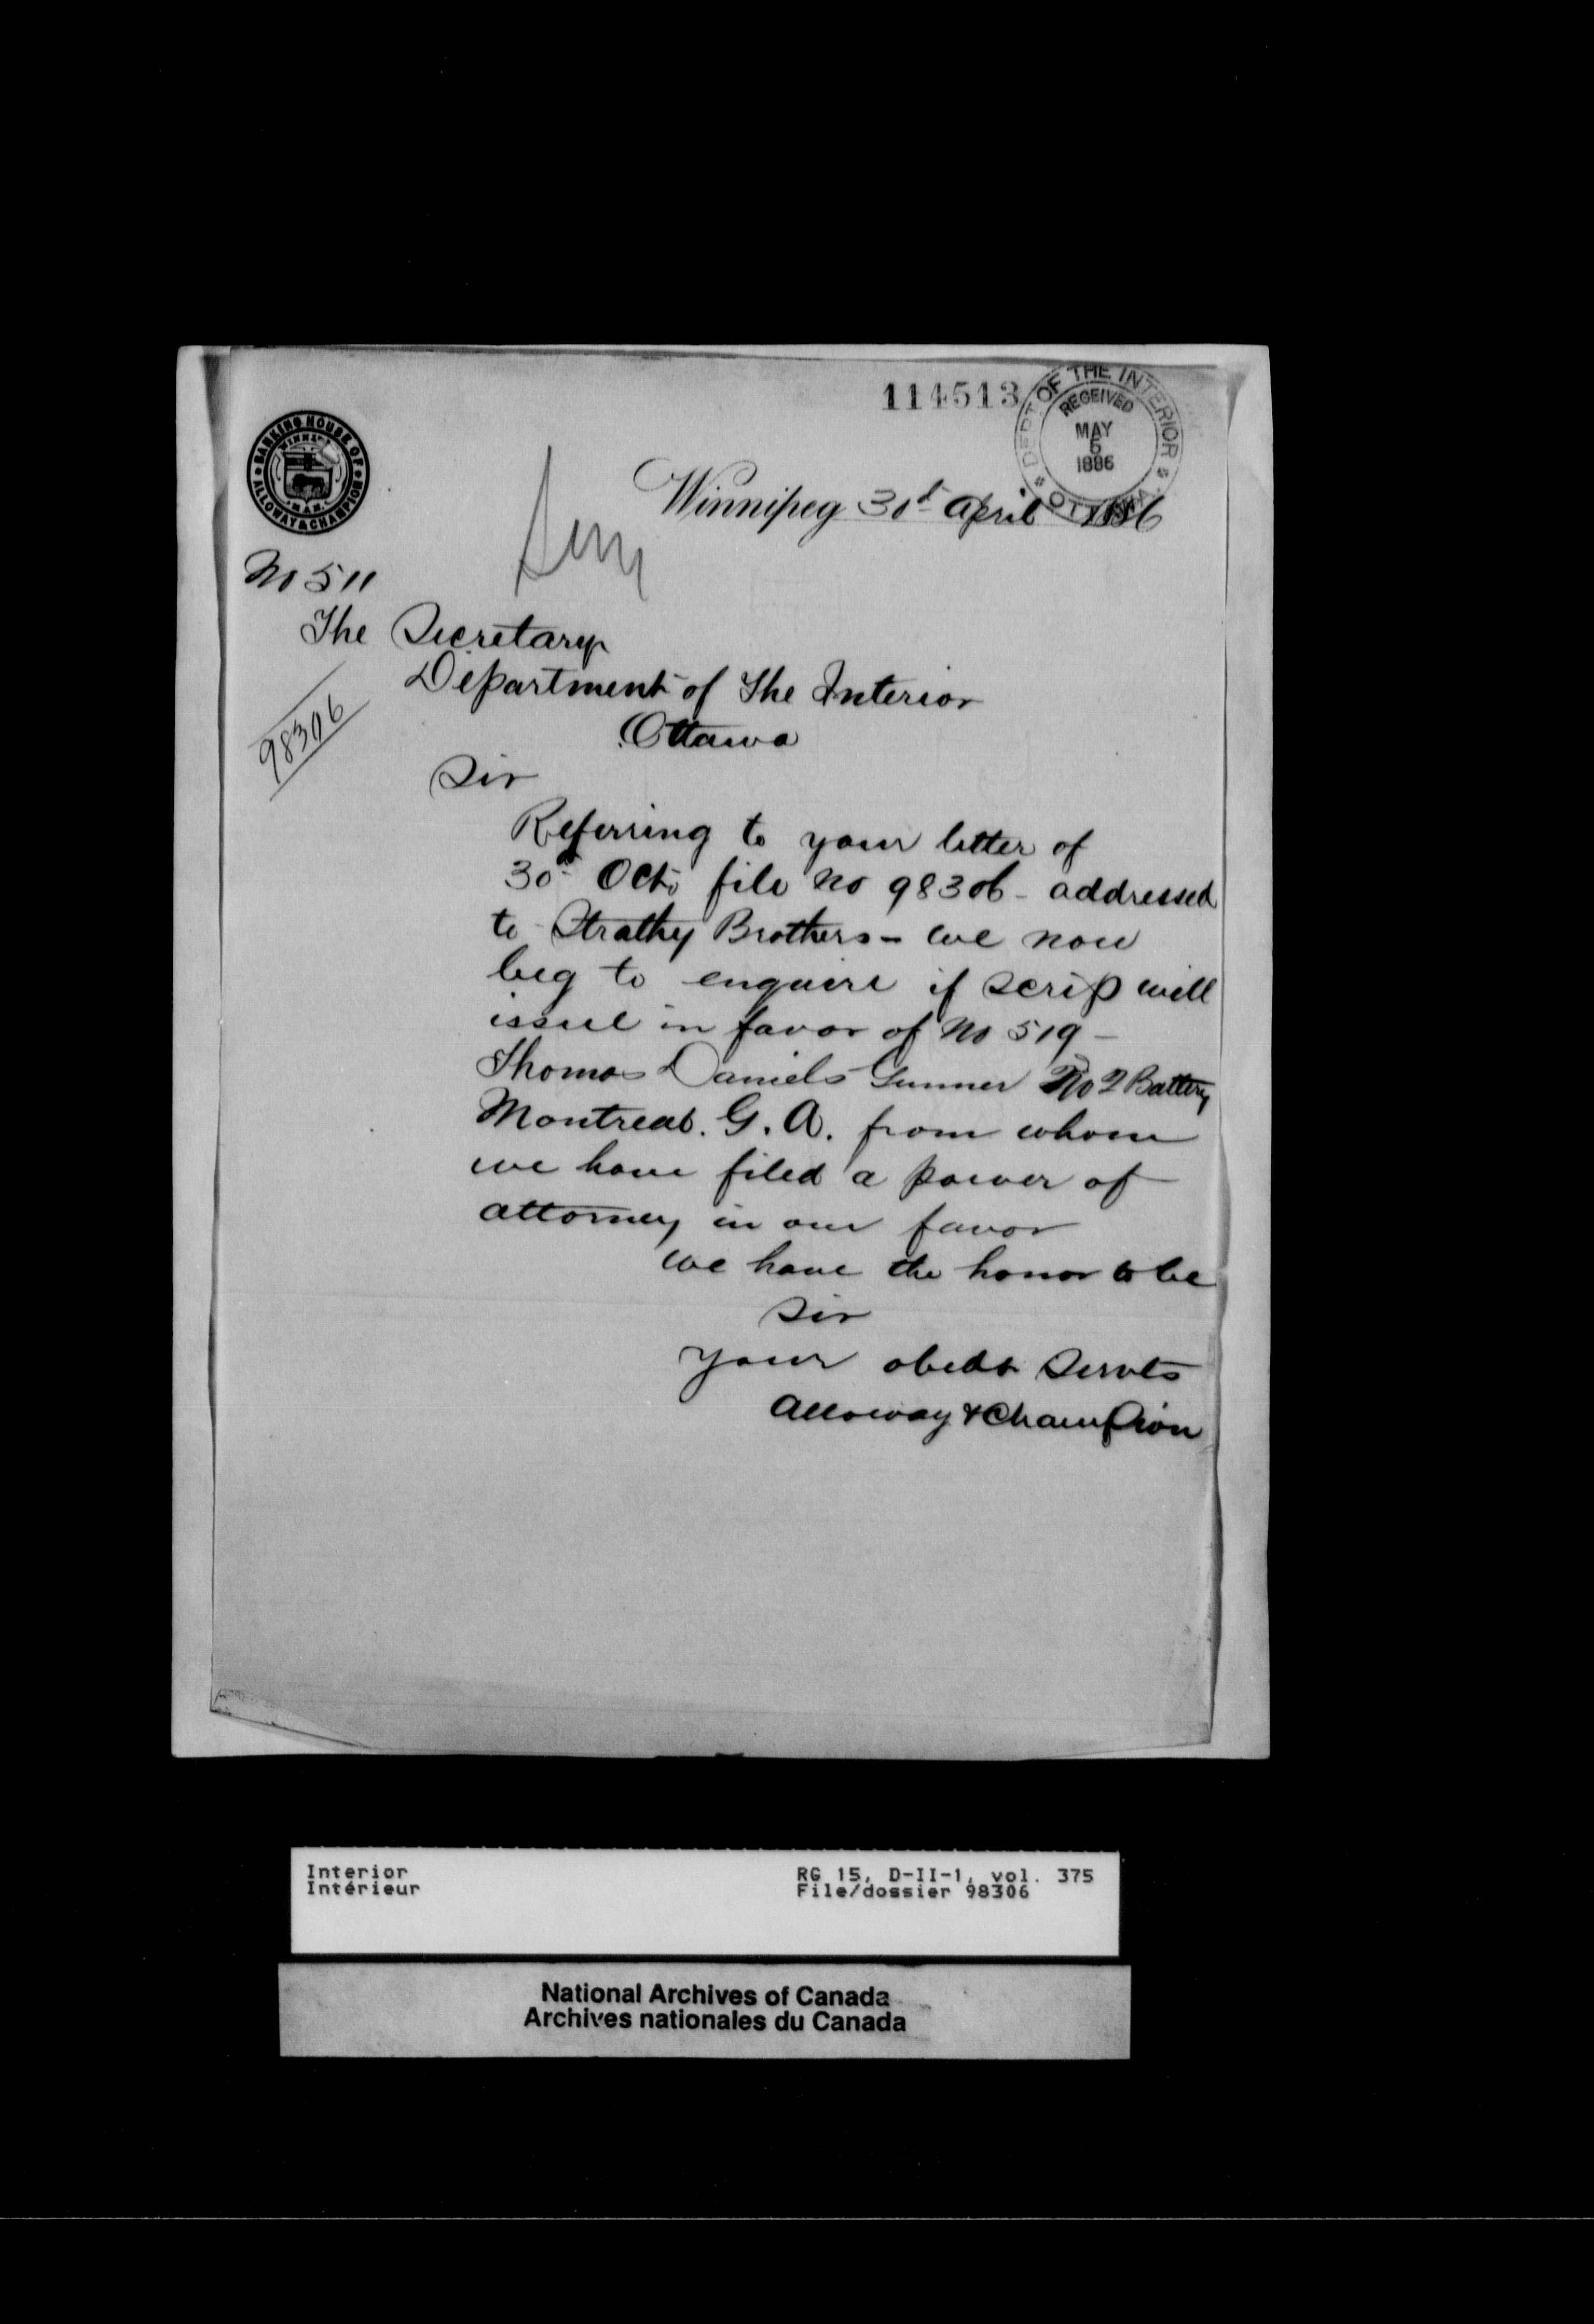 114513
DEPT OF THE INTERIOR
RECEIVED
MAY
5
1886
OTTAWA
BANKING HOUSE OF
ALLOWAY & CHAMPION
WINNIPEG
MAN.
Winnipeg 30th April 1886
No 511
The Secretary
Department of The Interior
Ottawa
98306
Sir
Referring to your letter of
30th Octo file No 98306 - addressed
to Strathy Brothers - we now
beg to enquire if scrip will
issue in favor of No 519 -
Thomas Daniels Gunner No 2 Battery
Montreal. G. A. from whom
we have filed a power of
attorney in our favor
We have the honor to be
Sir
your obedt servts
Alloway & Champion
Interior
Intérieur
RG 15, D-II-1, vol. 375
File/dossier 98306
National Archives of Canada
Archives nationales du Canada